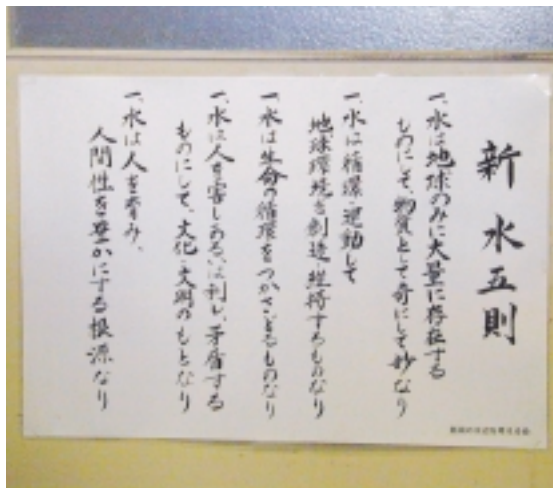 新 水五則
一、水は地球のみに大量に存在する
ものにして、物質として奇にして妙なり
一、水は循環・運動して
地球環境を創造・維持するものなり
一、水は生命の循環をつかさどるものなり
一、水は人を害しあるいは利し、矛盾する
ものにして、文化・文明のもとなり
一、水は人を育み、
人間性を豊かにする根源なり